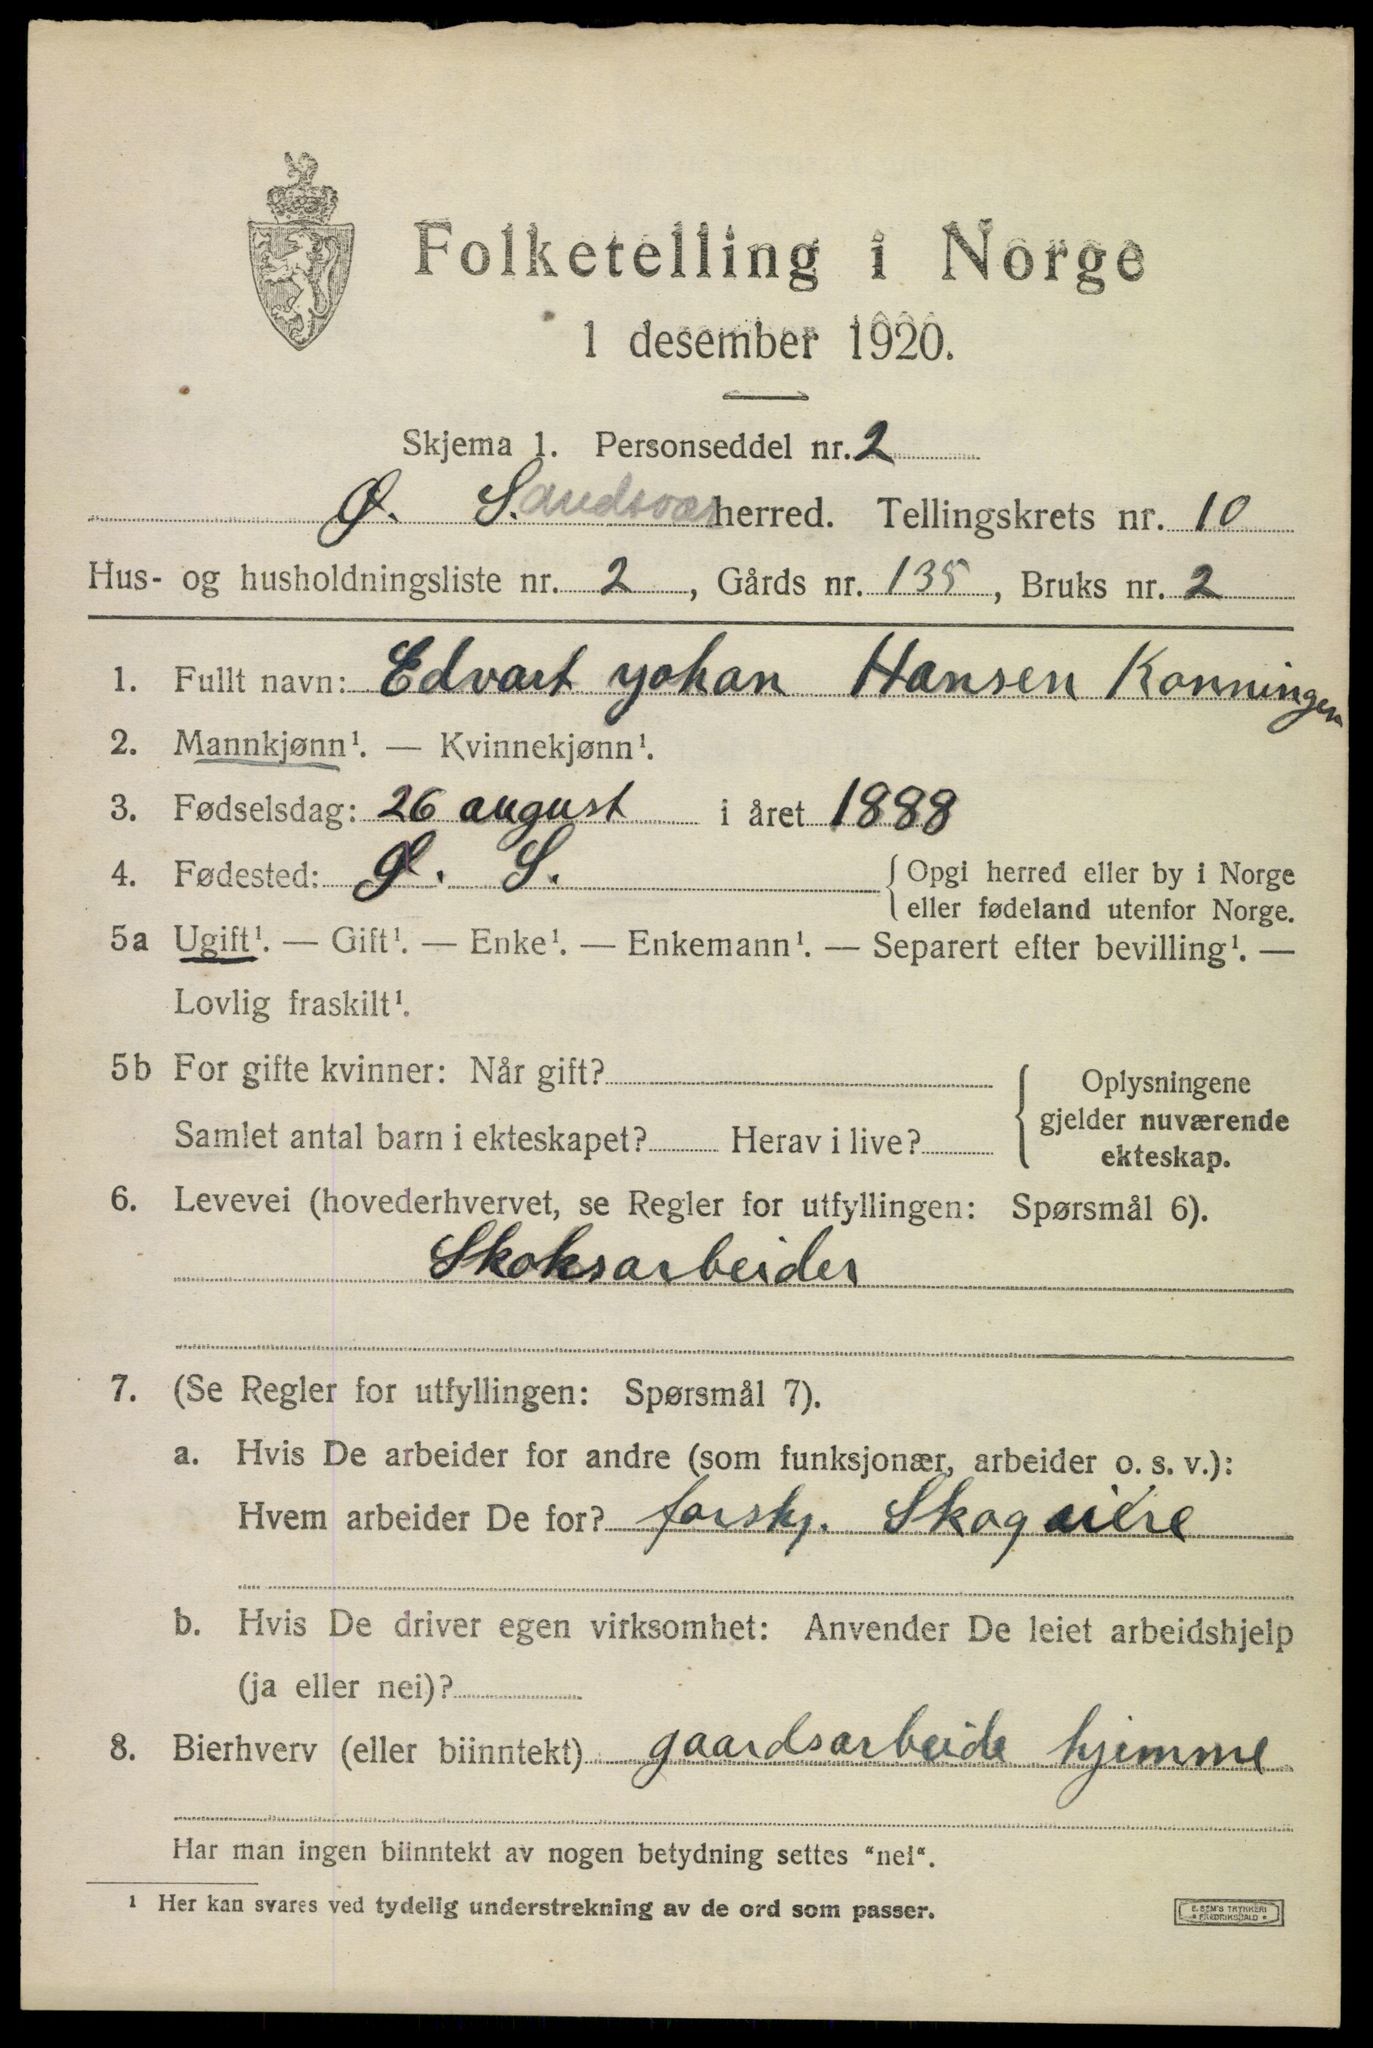 Folketelling i Norge
1 desember 1920.
Skjema 1. Personseddel nr. 2
Ø. Sandsvær herred. Tellingskrets nr. 10
Hus- og husholdningsliste nr. 2, Gårds nr. 135, Bruks nr. 2
1. Fullt navn: Edvart Johan Hansen Konningen
2. Mannkjønn¹. — Kvinnekjønn¹.
3. Fødselsdag: 26 august i året 1888
4. Fødested: Ø. S. { Opgi herred eller by i Norge
eller fødeland utenfor Norge.
5a Ugift¹. — Gift¹. — Enke¹. — Enkemann¹. — Separert efter bevilling¹. —
Lovlig fraskilt¹.
5b For gifte kvinner: Når gift?
Samlet antal barn i ekteskapet? Herav i live?
{ Oplysningene
gjelder nuværende
ekteskap.
6. Levevei (hovederhvervet, se Regler for utfyllingen: Spørsmål 6).
Skoksarbeider
7. (Se Regler for utfyllingen: Spørsmål 7).
a. Hvis De arbeider for andre (som funksjonær, arbeider o. s. v.):
Hvem arbeider De for? forskj. Skogeiere
b. Hvis De driver egen virksomhet: Anvender De leiet arbeidshjelp
(ja eller nei)?
8. Bierhverv (eller biinntekt) gaardsarbeide hjemme
Har man ingen biinntekt av nogen betydning settes "nei".
¹ Her kan svares ved tydelig understrekning av de ord som passer.
E. SEM'S TRYKKERI
FREDRIKSHALD